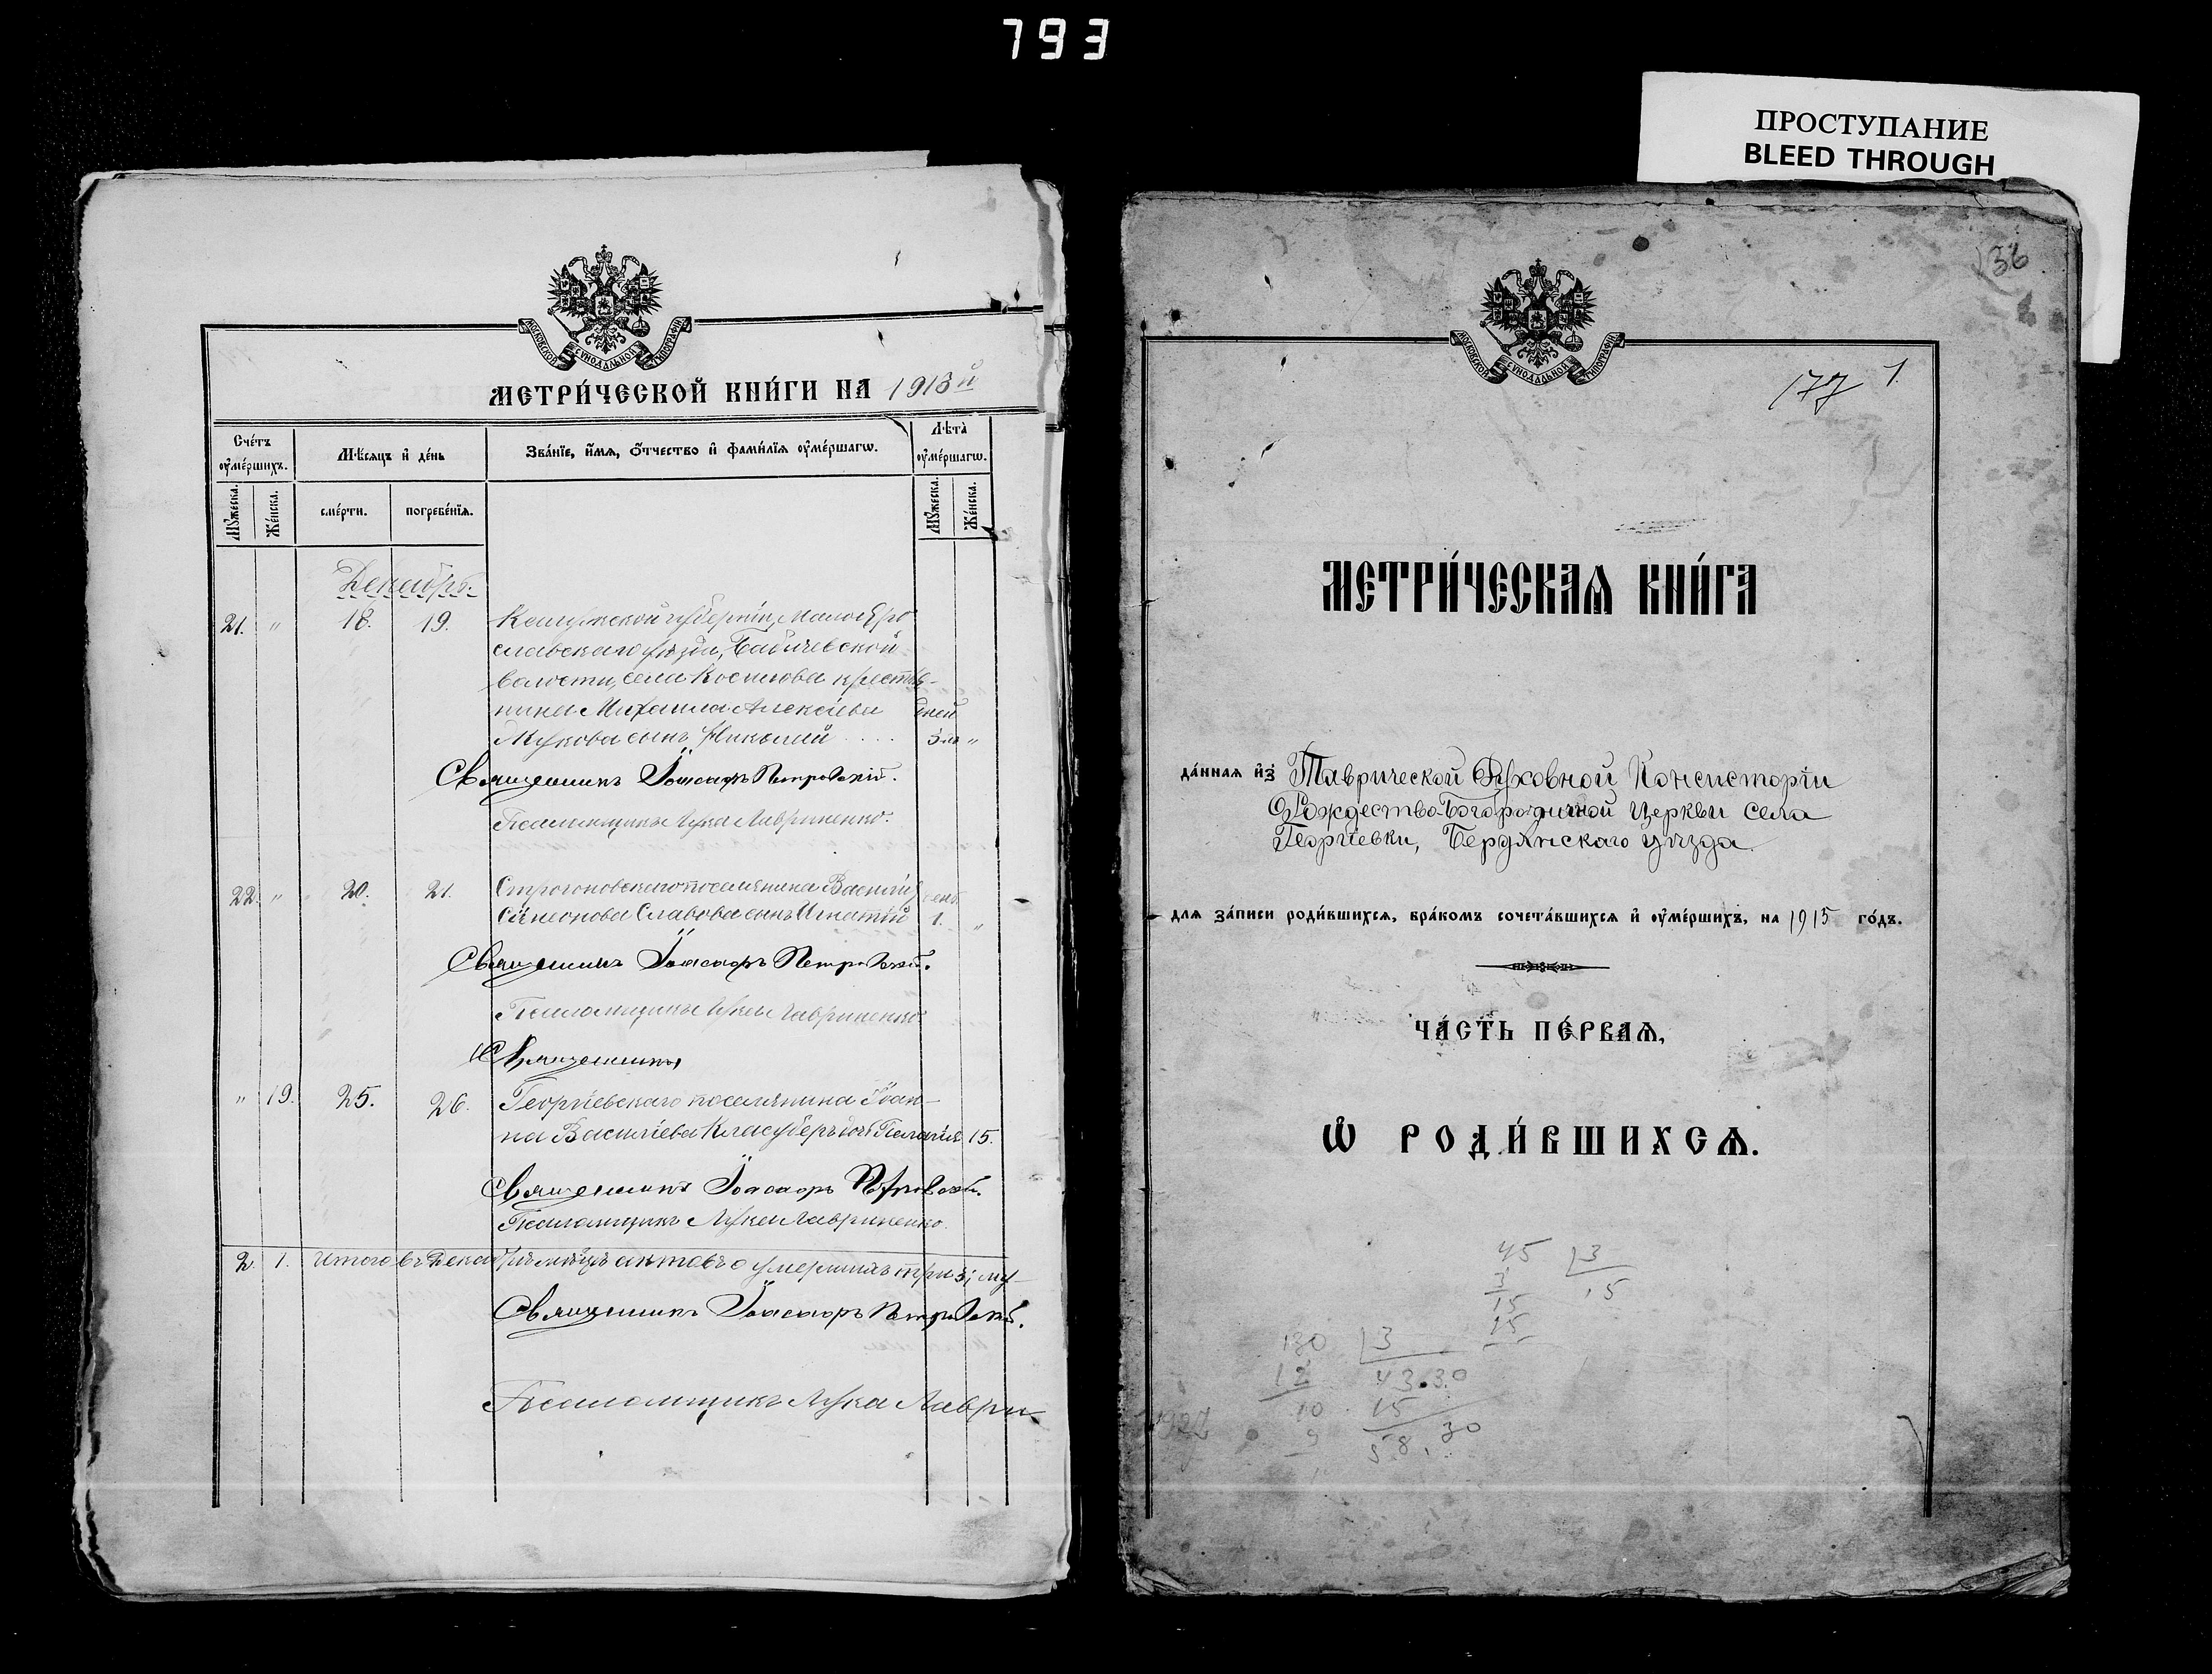 793
ПРОСТУПАНИЕ
BLEED THROUGH
МОСКОВСКОЙ СѴНОДАЛЬНОЙ ТИПОГРАФІИ
МЕТРИ́ЧЕСКОЙ КНИ́ГИ НА 1913й
Сче́тъ оу҆ме́ршихъ.
Мѣ́сяцъ и҆ де́нь
Зва́нїе, и҆́мя, ѻ҆́тчество и҆ фами́лїя оу҆ме́ршагѡ.
Лѣта̀ оу҆ме́ршагѡ.
Му́жеска.
Же́нска.
сме́рти.
погребе́нїя.
Му́жеска.
Же́нска.
Декабрь.
21. " 18. 19. Калужской губерніи, Малояро
славскаго уѣзда, Бабичевской
волости, села крестья-
нина Михаила Алексѣева дней
сынъ Николай 3 "
Священникъ Іоасафъ Петровскій.
Псаломщикъ Лука Лавриненко.
22. " 20. 21. Строгоновскаго поселянина Василія
Симеонова Славова сынъ Игнатій 1. "
Священникъ Іоасафъ Петровскій.
Псаломщикъ Лука Лавриненко
Священникъ
" 19. 25. 26. Георгіевскаго поселянина Іоан-
на Василіева дочь Пелагія 15.
Священникъ Іоасафъ Петровскій.
Псаломщикъ Лука Лавриненко.
2. 1. Итого въ Декабрѣ мѣсяцѣ актовъ о умершихъ три 3;
Священникъ Іоасафъ Петровскій.
Псаломщикъ Лука Лаври
36
МОСКОВСКОЙ СѴНОДАЛЬНОЙ ТИПОГРАФІИ
177 1.
МЕТРИ́ЧЕСКАѦ КНИ́ГА
да́нная и҆з̾ Таврической Духовной Консисторіи
Рождество-Богородичной Церкви села
Георгіевки, Бердянскаго уѣзда.
для за́писи роди́вшихся, бра́комъ сочета́вшихся и҆ оу҆ме́ршихъ, на 1915 го́дъ.
ЧА́СТЬ ПЕ́РВАѦ,
Ѽ РОДИ́ВШИХСѦ.
45 3
3 15
15
15
130 3
12 43.30
10 15
9 58.30
1